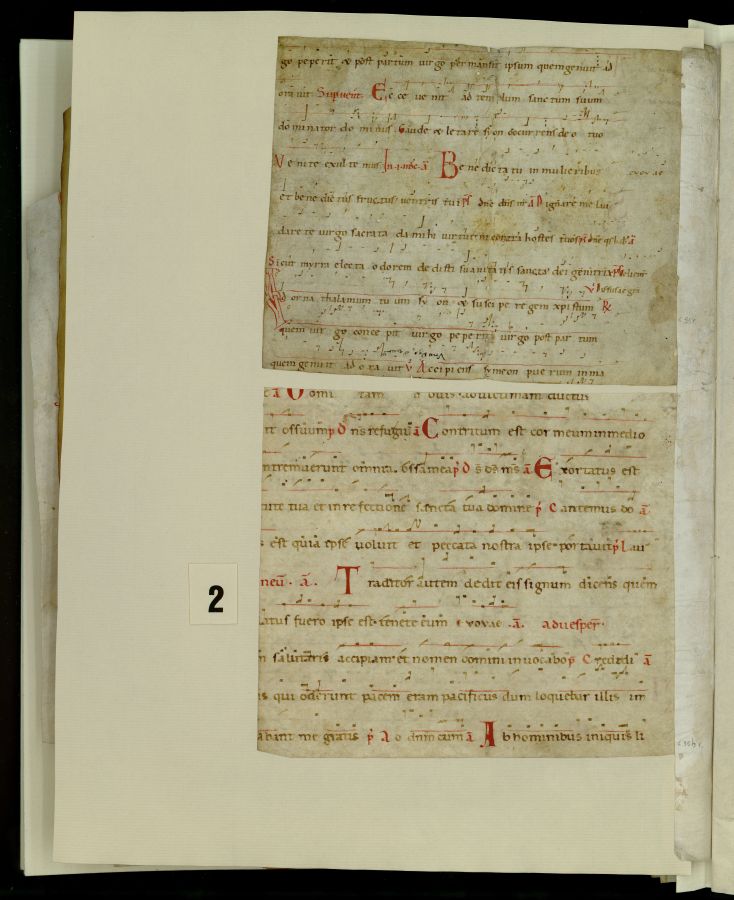 go peperit & post partum uirgo permansit ipsum quem genuit ad
orauit Sup uenit. Ecce uenit ad templum sanctum suum
dominator dominus Gaude & letare syon occurrens deo tuo
Venite exultemus In i noc a Benedicta tu in mulieribus euouae
et benedictus fructus uentris tui ps Dne dns nr a Dignare me lau
dare te uirgo sacrata da mihi uirtutem contra hostes tuos
Sicut myrra electa odorem dedisti suauitatis sancta dei genitrix
Diffusa e gra
Adorna thalamum tuum syon & suscipe regem xpistum R
quem uirgo concepit uirgo peperit uirgo post partum
quem genuit adorauit V Accipiens symeon puerum in ma
tam ouis ad uictimam ductus
ossuum p Dns refugiu a Contritum est cor meum in medio
ntremuerunt omnia ossa mea p Ds ds ms a Exortatus es
tute tua et in refectione sancta tua domine p Cantemus do a
est quia ipse uoluit et peccata nostra ipse portauit p Lau
neu. a. Traditor autem dedit eis signum dicens quem
atus fuero ipse est tenete eum euouae .a. ad uesper.
salutaris accipiam et nomen domini inuocabo p Credidi a
s qui oderunt pacem eram pacificus dum loquebar illis im
abant me gratis p Ad dnm cum a Ab hominibus iniquis li
2